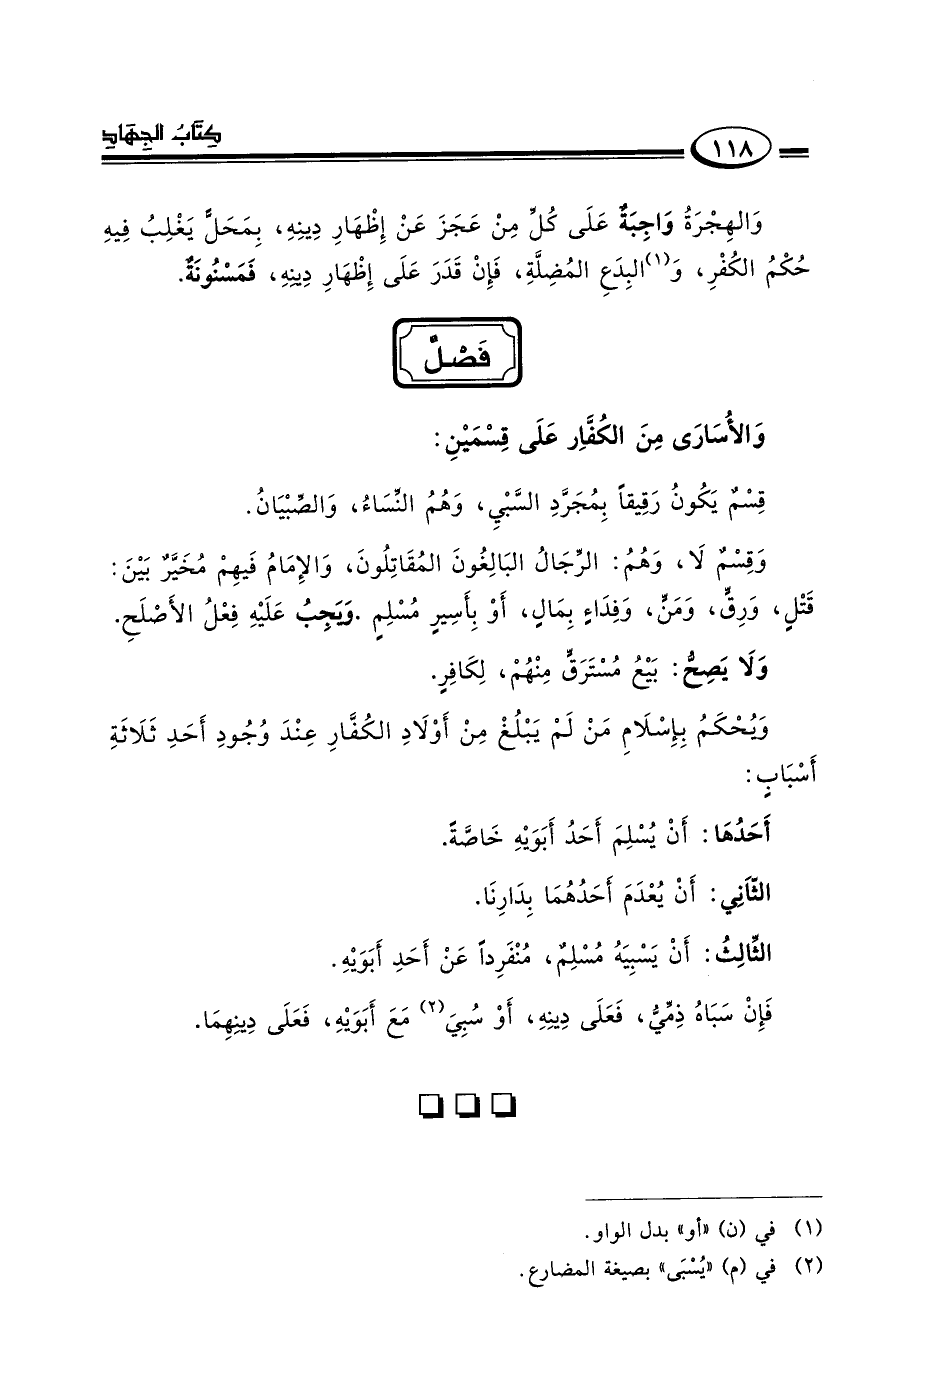 كِتَابُ الجِهَادِ
١١٨
وَالهِجْرَةُ وَاجِبَةٌ عَلَى كُلِّ مِنْ عَجَزَ عَنْ إِظْهَارِ دِينِهِ، بِمَحَلٍّ يَغْلِبُ فِيهِ
حُكْمُ الكُفْرِ، وَ(١)البِدَعِ المُضِلَّةِ، فَإِنْ قَدَرَ عَلَى إِظْهَارِ دِينِهِ، فَمَسْنُونَةٌ.
فَصْلٌ
وَالأُسَارَى مِنَ الكُفَّارِ عَلَى قِسْمَيْنِ:
قِسْمٌ يَكُونُ رَقِيقاً بِمُجَرَّدِ السَّبْيِ، وَهُمُ النِّسَاءُ، وَالصِّبْيَانُ.
وَقِسْمٌ لَا، وَهُمُ: الرِّجَالُ البَالِغُونَ المُقَاتِلُونَ، وَالإِمَامُ فَيهِمْ مُخَيَّرٌ بَيْنَ:
قَتْلٍ، وَرِقٍّ، وَمَنٍّ، وَفِدَاءٍ بِمَالٍ، أَوْ بِأَسِيرٍ مُسْلِمٍ .وَيَجِبُ عَلَيْهِ فِعْلُ الأَصْلَحِ.
وَلَا يَصِحُّ: بَيْعُ مُسْتَرَقٍّ مِنْهُمْ، لِكَافِرٍ.
وَيُحْكَمُ بِإِسْلَامِ مَنْ لَمْ يَبْلُغْ مِنْ أَوْلَادِ الكُفَّارِ عِنْدَ وُجُودِ أَحَدِ ثَلَاثَةِ
أَسْبَابٍ:
أَحَدُهَا: أَنْ يُسْلِمَ أَحَدُ أَبَوَيْهِ خَاصَّةً.
الثَّانِي: أَنْ يُعْدَمَ أَحَدُهُمَا بِدَارِنَا.
الثَّالِثُ: أَنْ يَسْبِيَهُ مُسْلِمٌ، مُنْفَرِداً عَنْ أَحَدِ أَبَوَيْهِ.
فَإِنْ سَبَاهُ ذِمِّيٌّ، فَعَلَى دِينِهِ، أَوْ سُبِيَ(٢) مَعَ أَبَوَيْهِ، فَعَلَى دِينِهِمَا.
(١) في (ن) «أو» بدل الواو.
(٢) في (م) «يُسْبَى» بصيغة المضارع.